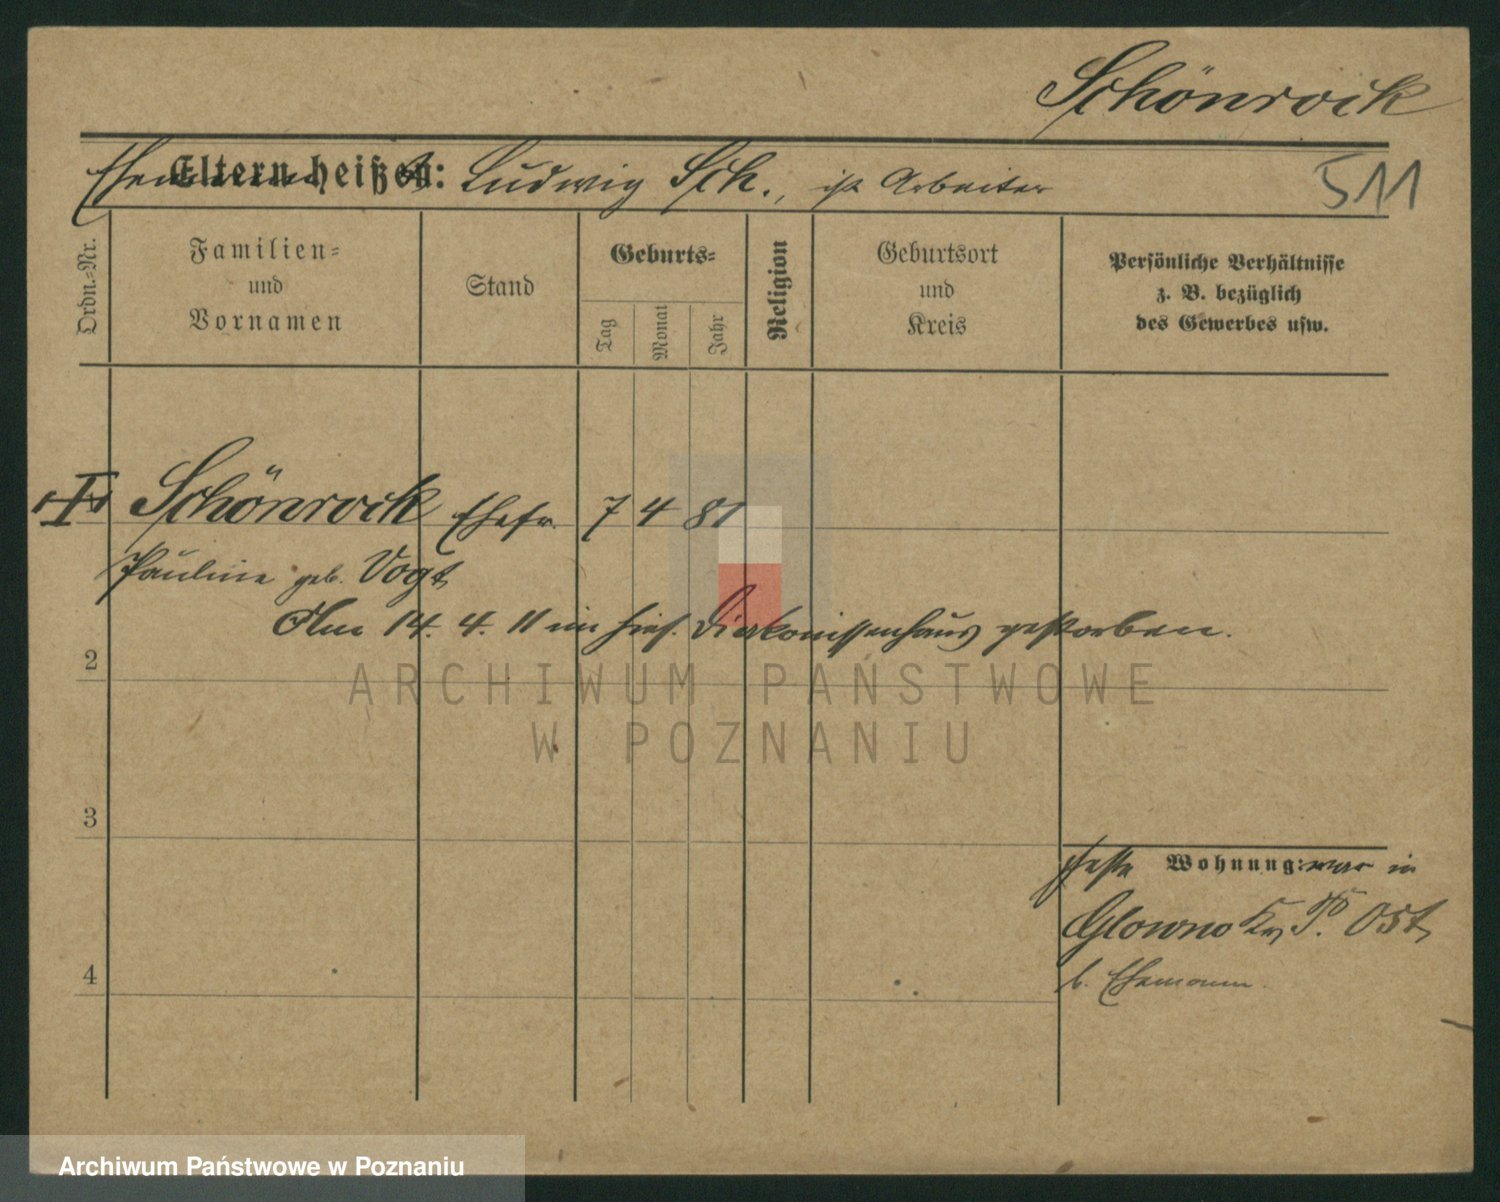 Schönrock
Ehemann heißt: Ludwig Sch., ist Arbeiter
Eltern heißen:
511
Ordn.-Nr.
Familien- und Vornamen
Stand
Geburts-
Tag
Monat
Jahr
Religion
Geburtsort und Kreis
Persönliche Verhältnisse z. B. bezüglich des Gewerbes usw.
Schönrock Ehefr. 7 4 81
Pauline geb. Vogt
Am 14. 4. 11 im hies. Diakonissenhaus gestorben.
2
ARCHIWUM PAŃSTWOWE
W POZNANIU
3
Wohnung: war in
Glowno Kr. Po. Ost
b. Ehemann.
4
Archiwum Państwowe w Poznaniu